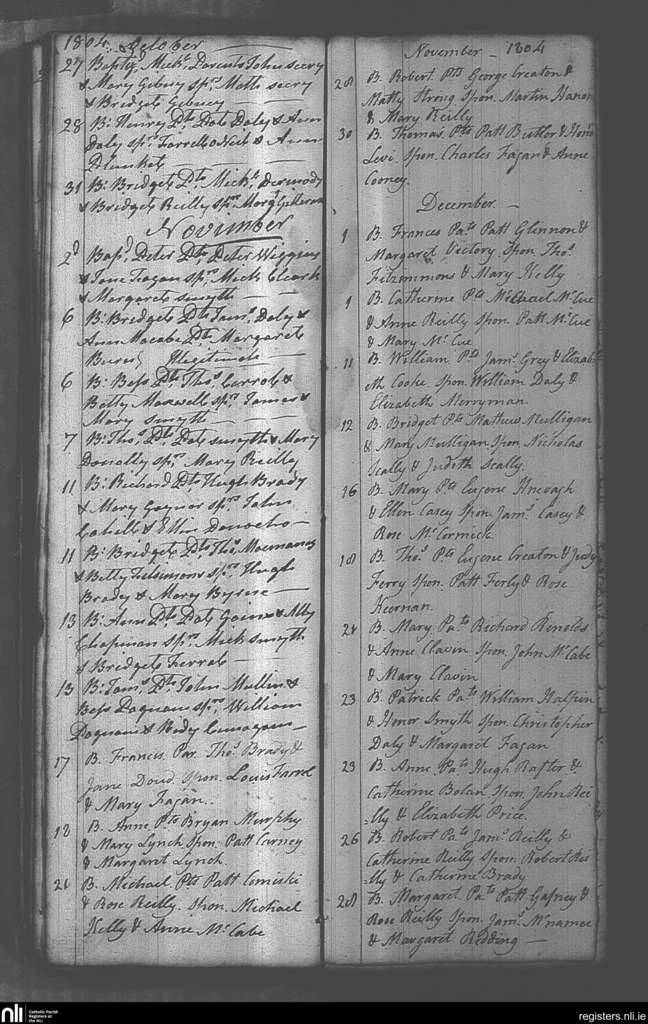 1804 October
27 Bapty. Mich: Parents John seery
& Mary Gebeny spr. Matt: seery
& Bridget Gebeney
28 B: Henry Dto Dols Daly & Ann
Daly spr. Farrell oNeil & Ann
Plunket
31 B: Bridget Dto. Mick: Dermody
& Bridget Reilly spr. Marg:
November
2d Bap: Peter Dto. Peter Wiggins
& Jane Fagan spr. Mick Cleark
& Margaret smyth
6 B: Bridget Dto Jam: Daly &
Ann Macabe Dto. Margaret
Burns Illegitimate
6 B: Bess Dto Tho: Carrol &
Betty Maxwell spr. James &
Mary smyth
7 B: Tho: Dto. Pat smyth & Mary
Donolly spr. Mary Reilly
11 B: Richard Dto. Hugh Brady
& Mary Gaynor spr. John
Cahill & Ellin Donocho
11 B: Bridget Dto. Tho:
& Betty Fitsimons spr. Hugh
Brady & Mary Byrne
13 B: Ann Dto. Pat & Alby
Chapman spr. Mick smyth
& Bridget Ferrol
13 B: Jam: Dto John Mullin &
Bess spr. William
& Kedy
17 B. Francis Par. Thos. Brady &
Jane Doud Spon. Louis Farrel
& Mary Fagan.
18 B. Anne Pts Bryan Murphy
& Mary Lynch Spon. Patt Carney
& Margaret Lynch
21 B. Michael Pts Patt Comiski
& Rose Reilly. Spon. Michael
Kelly & Anne Mc.Cabe
November - 1804
28 B. Robert. Pts George Creaton &
Matty Strong Spon. Martin Hanon
& Mary Reilly
30 B. Thomas. Pts Patt Butler & Honor
Levi. Spon. Charles Fagan & Anne
Cooney.
December
1 B. Frances Pats. Patt Glennon &
Margaret Victory Spon. Thos.
Fitzimmons & Mary Kelly
9 B. Catherine Pts Michael Mc.Cue
& Anne Reilly Spon. Patt Mc.Cue
& Mary Mc.Cue
11 B. William Pts. Jams. Grey & Elizab
eth Cooke. Spon. William Daly &
Elizabeth Merryman.
12 B. Bridget Pts Mathew Mulligan
& Mary Mulligan Spon. Nicholas
Scally & Judith Scally.
16 B. Mary Pts Eugene Kneagh
& Ellen Casey Spon. Jams. Casey &
Rose Mc.Cormick
18 B. Thos. Pts Eugene Creaton & Judy
Ferry Spon. Patt Forly & Rose
Keernan.
24 B. Mary Pats Richard Renolds
& Anne Clavin Spon. John Mc.Cabe
& Mary Clavin
23 B. Patrick Pats William Halpin
& Honor Smyth Spon. Christopher
Daly & Margaret Fagan
23 B. Anne Pats Hugh Rafter &
Catherine Bolan Spon. John Rei
lly & Elizabeth Price.
26 B. Robert Pats Jams. Reilly &
Catherine Reilly Spon. Robert Rei
lly & Catherine Brady
28 B. Margaret Pats Patt Gafney &
Rose Reilly Spon. Jams. Mc.namee
& Margaret Redding
nli Catholic Parish
Registers at
the NLI
registers.nli.ie